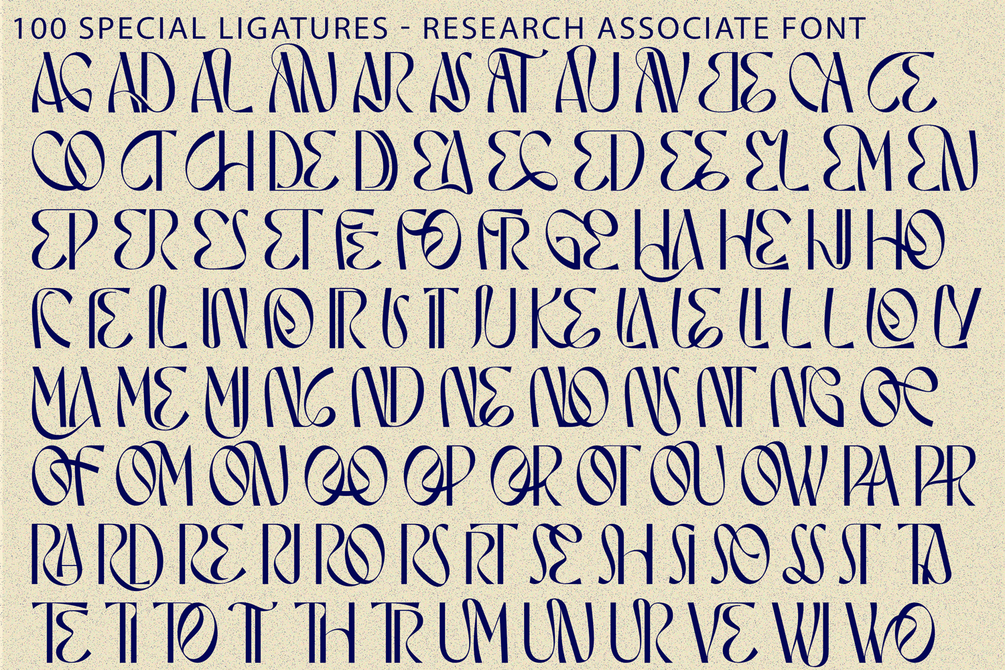 100 SPECIAL LIGATURES - RESEARCH ASSOCIATE FONT
AG AD AL AN AR AS AT AU AV BE CA CE
CO CT CH DE DI EA EC ED EE EL EM EN
EP ER ES ET FE FO FR GE HA HE HI HO
IC IE IL IN IO IR IS IT IU KE LA LE LI LL LO LY
MA ME MI NC ND NE NO NS NT NG OE
OF OM ON OO OP OR OT OU OW PA PR
RA RD RE RI RO RS RT SE SH SI SO SS ST TA
TE TI TO TT TH TR UM UN UR VE WI WO